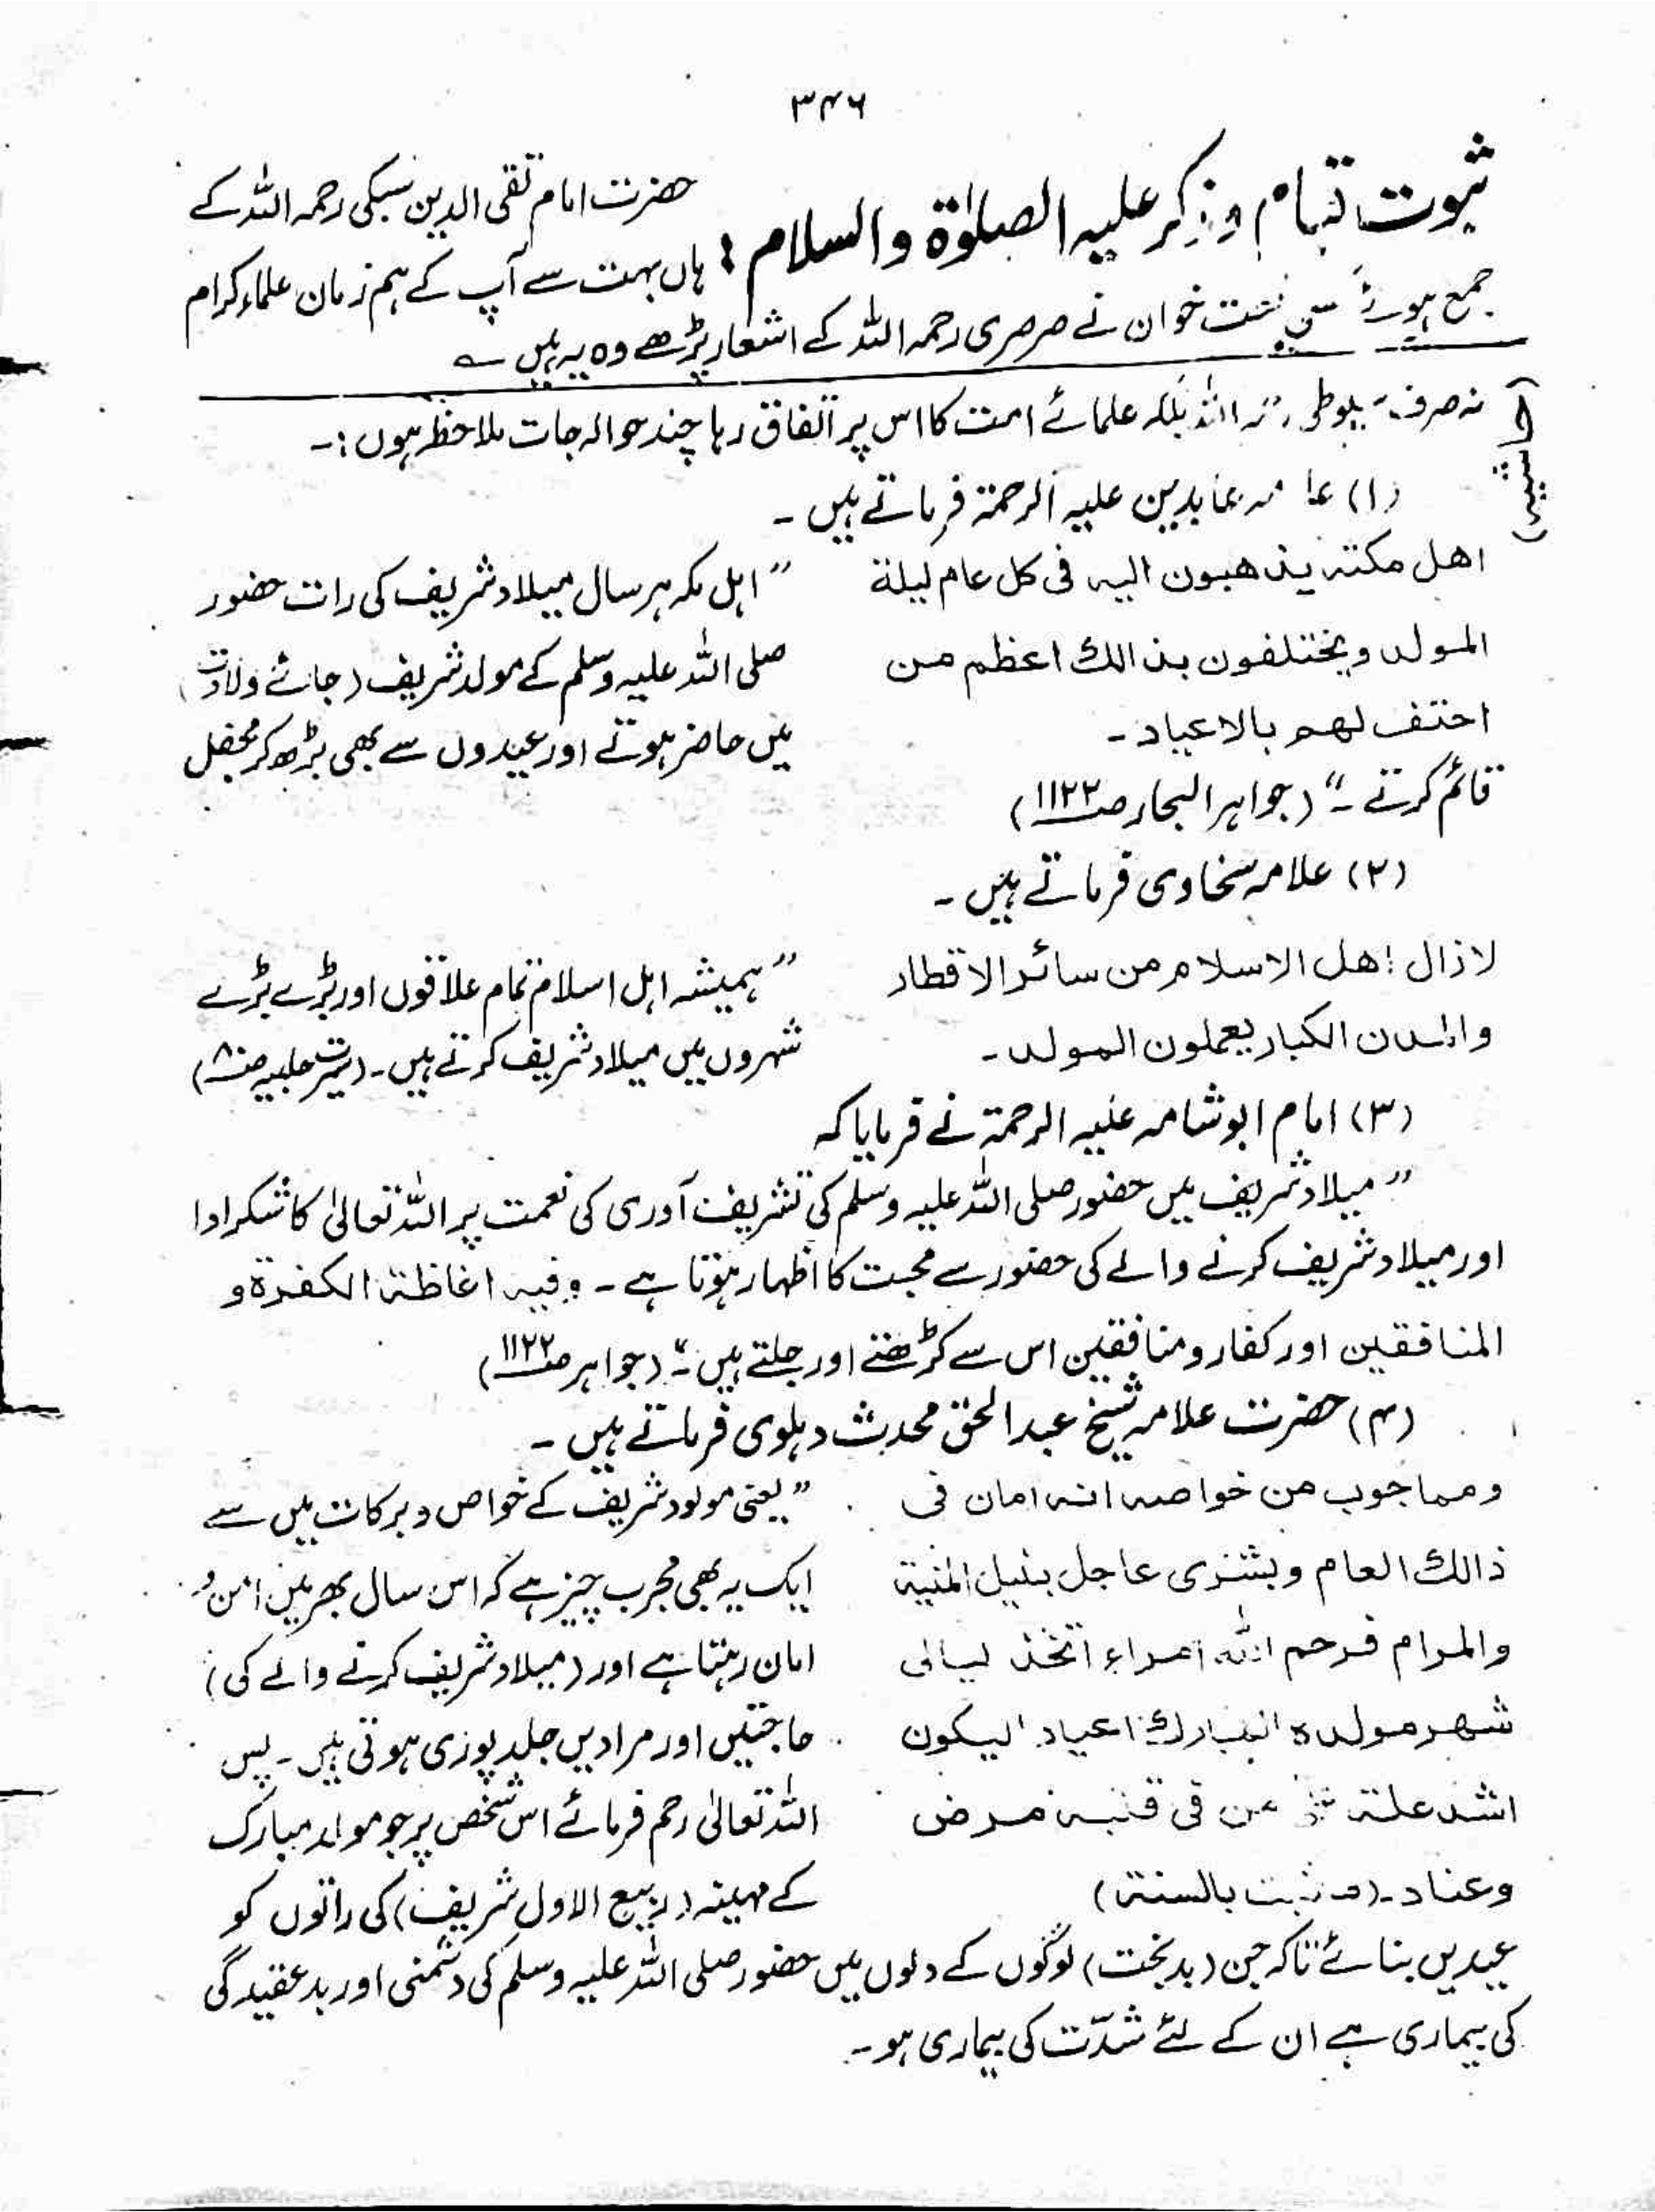 ۳۴۶
ثبوت قیام و ذکر علیہ الصلوٰۃ والسلام : حضرت امام تقی الدین سبکی رحمہ اللہ کے
ہاں بہت سے آپ کے ہم زمان علماء کرام
جمع ہوئے کسی نعت خوان نے صرصری رحمہ اللہ کے اشعار پڑھے وہ یہ ہیں ؎
نہ صرف سیوطی رحمہ اللہ بلکہ علمائے امت کا اس پر اتفاق رہا چند حوالہ جات ملاحظہ ہوں :۔
(حاشیہ)
(۱) عابدین علیہ الرحمۃ فرماتے ہیں ۔
اھل مکتہ یذھبون الیہ فی کل عام لیلۃ
المولد ویختلفون بذالک اعظم من
احتف لھم بالاعیاد ۔
”اہل مکہ ہر سال میلاد شریف کی رات حضور
صلی اللہ علیہ وسلم کے مولد شریف (جائے ولادت)
میں حاضر ہوتے اور عیدوں سے بھی بڑھ کر محفل
قائم کرتے ۔“ (جواہر البحار صـ۱۱۲۲)
(۲) علامہ سخاوی فرماتے ہیں ۔
لازال اھل الاسلام من سائر الاقطار
والمدن الکبار یعملون المولد ۔
”ہمیشہ اہل اسلام تمام علاقوں اور بڑے بڑے
شہروں میں میلاد شریف کرتے ہیں ۔ (سیرت حلبیہ صـ۸۰)
(۳) امام ابو شامہ علیہ الرحمۃ نے فرمایا کہ
”میلاد شریف میں حضور صلی اللہ علیہ وسلم کی تشریف آوری کی نعمت پر اللہ تعالیٰ کا شکر ادا
اور میلاد شریف کرنے والے کی حضور سے محبت کا اظہار ہوتا ہے ۔ وفیہ اغاظۃ الکفرۃ و
المنافقین اور کفار و منافقین اس سے کڑھتے اور جلتے ہیں ۔“ (جواہر صـ۱۱۲۲)
(۴) حضرت علامہ شیخ عبدالحق محدث دہلوی فرماتے ہیں ۔
ومما جوب من خواصہ انہ امان فی
ذالک العام وبشری عاجل بنیل المنیۃ
والمرام فرحم اللہ امراء اتخذ لیالی
شھر مولدہ المبارک اعیاد الیکون
اشد علۃ من فی قلبہ مرض
وعناد ۔ (ما ثبت بالسنتہ)
”یعنی مولود شریف کے خواص و برکات میں سے
ایک یہ بھی مجرب چیز ہے کہ اس سال بھر میں امن و
امان رہتا ہے اور (میلاد شریف کرنے والے کی)
حاجتیں اور مرادیں جلد پوری ہوتی ہیں ۔ پس
اللہ تعالیٰ رحم فرمائے اس شخص پر جو مولد مبارک
کے مہینہ (ربیع الاول شریف) کی راتوں کو
عیدیں بنائے تاکہ جن (بدبخت) لوگوں کے دلوں میں حضور صلی اللہ علیہ وسلم کی دشمنی اور بدعقیدگی
کی بیماری ہے ان کے لئے شدّت کی بیماری ہو ۔